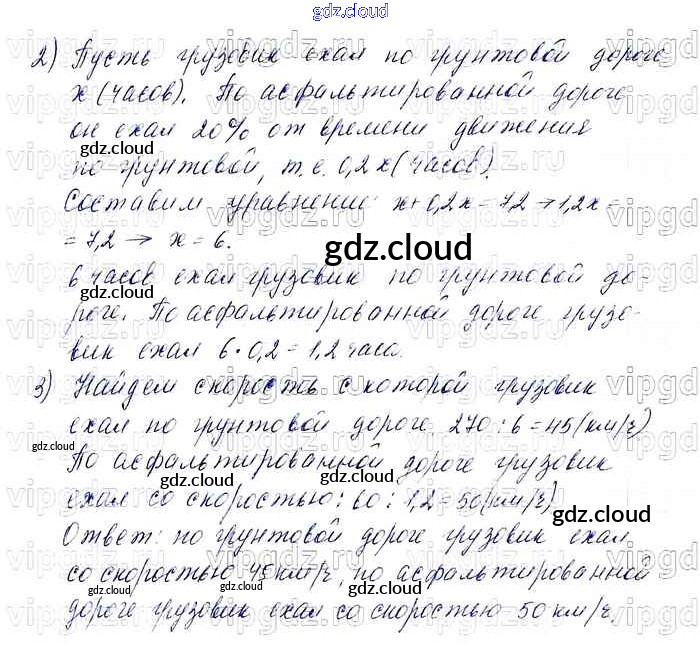 gdz.cloud
2) Пусть грузовик ехал по грунтовой дороге
x (часов). По асфальтированной дороге
он ехал 20% от времени движения
по грунтовой, т.е. 0,2x (часов).
Составим уравнение: x+0,2x=7,2→1,2x=
=7,2→ x=6.
gdz.cloud
6 часов ехал грузовик по грунтовой до-
gdz.cloud
роге. По асфальтированной дороге грузо-
вик ехал 6·0,2=1,2 часа.
3) Найдем скорость с которой грузовик
ехал по грунтовой дороге 270:6=45(км/ч)
gdz.cloud
По асфальтированной дороге грузовик
ехал со скоростью: 60:1,2=50(км/ч)
gdz.cloud
Ответ: по грунтовой дороге грузовик ехал
со скоростью 45 км/ч, по асфальтированной
дороге грузовик ехал со скоростью 50 км/ч.
gdz.cloud